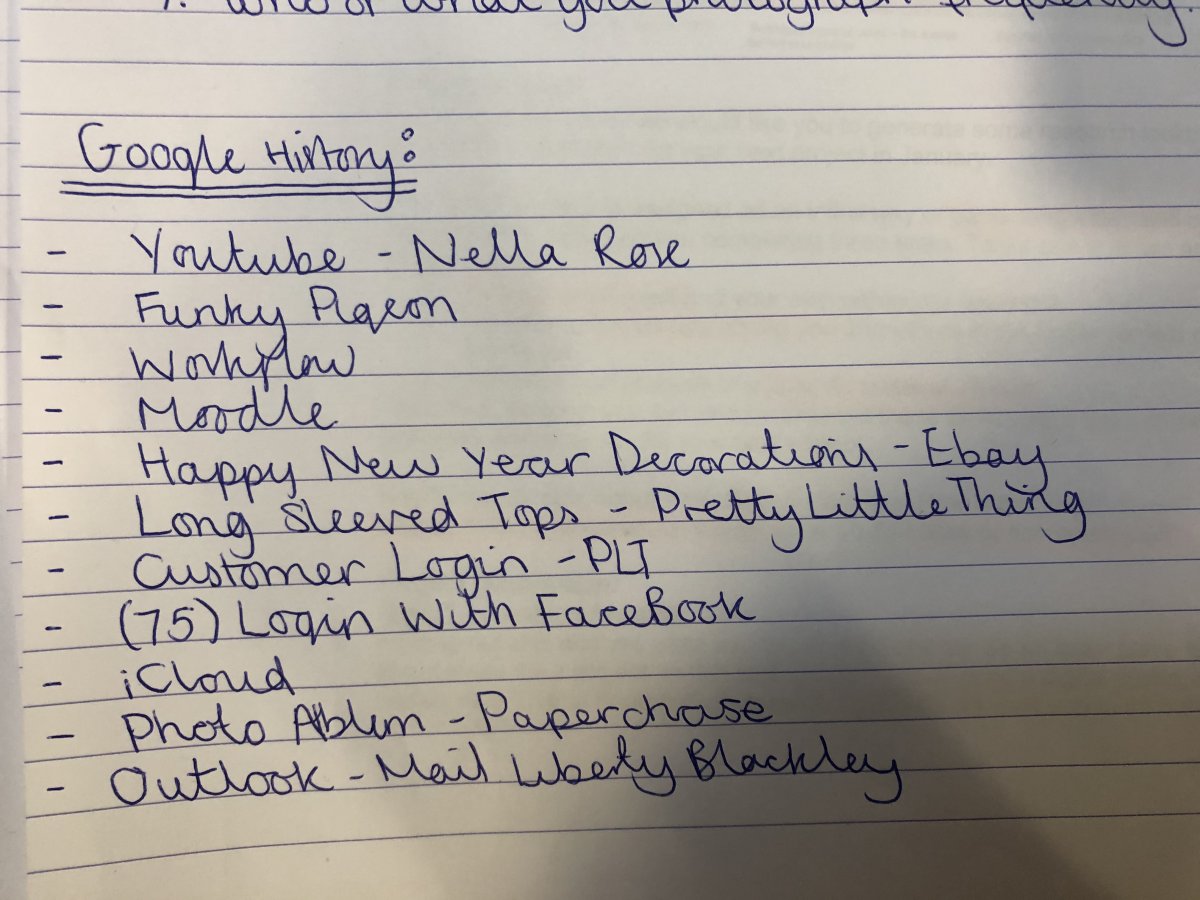 7. Who or what you photograph frequently.
Google History:
- Youtube - Nella Rose
- Funky Pigeon
- Workflow
- Moodle
- Happy New Year Decorations - Ebay
- Long Sleeved Tops - PrettyLittleThing
- Customer Login - PLT
- (75) Login With FaceBook
- iCloud
- Photo Ablum - Paperchase
- Outlook - Mail Liberty Blackley